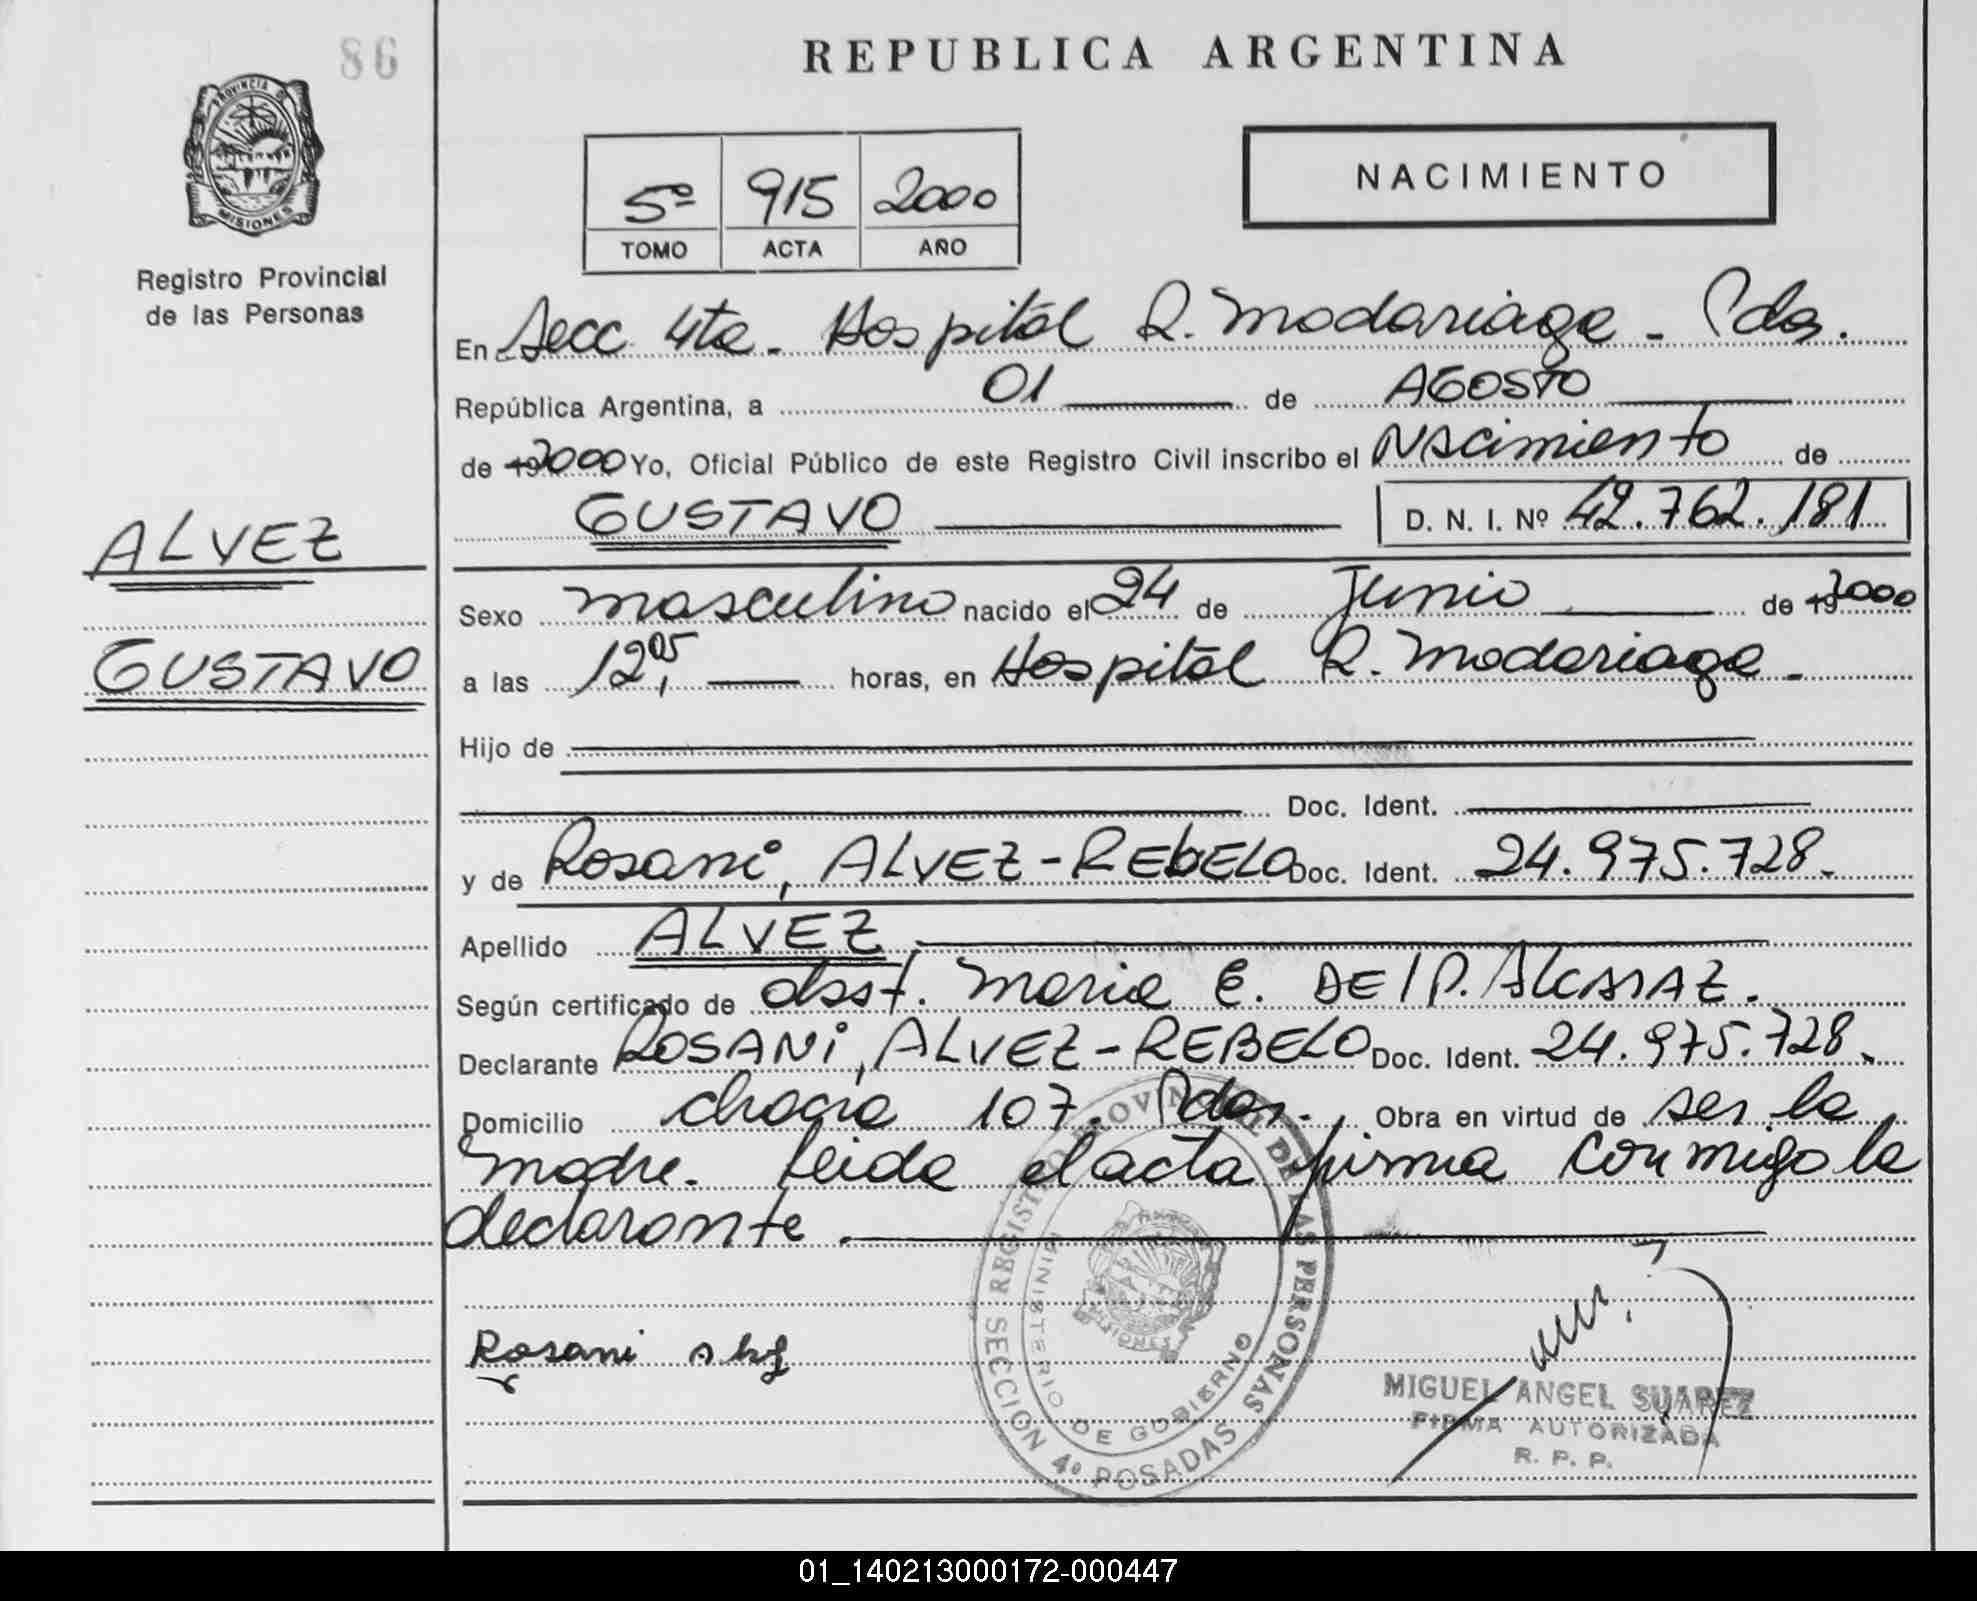 86
REPUBLICA ARGENTINA
PROVINCIA DE MISIONES
Registro Provincial
de las Personas
5º 915 2000
TOMO ACTA AÑO
NACIMIENTO
En Secc 4ta. Hospital R. Madariaga - Pdas.
República Argentina, a 01 de AGOSTO
de 19 2000 Yo, Oficial Público de este Registro Civil inscribo el Nacimiento de
GUSTAVO D. N. I. Nº 42.762.181
ALVEZ
GUSTAVO
Sexo masculino nacido el 24 de Junio de 19 2000
a las 12,05 horas, en Hospital R. Madariaga.
Hijo de
Doc. Ident.
y de Rosani, ALVEZ-REbELO Doc. Ident. 24.975.728.
Apellido ALVEZ
Según certificado de obst. Maria E. DEl P. AlcARAZ.
Declarante ROSANi, ALVEZ-REBELO Doc. Ident. 24.975.728.
Domicilio chacra 107. Pdas. Obra en virtud de ser la
madre. Leida el acta firma conmigo la
declarante.
Rosani
REGISTRO PROVINCIAL DE LAS PERSONAS
MINISTERIO DE GOBIERNO
MISIONES
SECCION 4º POSADAS
MIGUEL ANGEL SUAREZ
FIRMA AUTORIZADA
R. P. P.
01_140213000172-000447